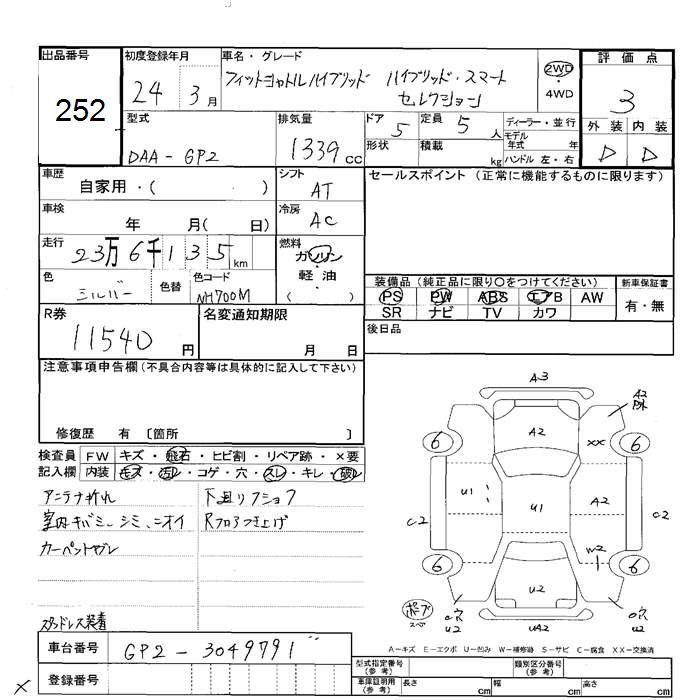 出品番号
252
初度登録年月
24 3月
車名・グレード
フィットシャトルハイブリッド ハイブリッド・スマート
セレクション
2WD
・
4WD
評価点
3
外装 内装
D D
型式
DAA-GP2
排気量
1339cc
ドア
5
定員
5人
形状
積載
kg
ディーラー・並行
モデル
年式 年
ハンドル 左・右
車歴
自家用・( )
シフト
AT
セールスポイント (正常に機能するものに限ります)
車検
年 月( 日)
冷房
AC
走行
23万6千135km
燃料
ガソリン
・
軽油
( )
色
シルバー
色替
色コード
NH700M
装備品 (純正品に限り○をつけてください)
PS PW ABS エアB AW
SR ナビ TV カワ
新車保証書
有・無
R券
11540円
名変通知期限
月 日
後日品
注意事項申告欄(不具合内容等は具体的に記入して下さい)
修復歴 有 〔箇所 〕
検査員 FW キズ・飛石・ヒビ割・リペア跡・×要
記入欄 内装 キズ・汚レ・コゲ・穴・スレ・キレ・破レ
アンテナ折れ
室内キバミ、シミ、ニオイ
カーペットヤブレ
スタッドレス装着
下廻りクショフ
Rフロアつき上げ
A3
A2
6
A2
××
6
U1
U1
A2
C2
C2
W2
6
U2
6
スペア
穴
U2
UA2
穴
U2
A−キズ E−エクボ U−凹み W−補修跡 S−サビ C−腐食 XX−交換済
車台番号
GP2-3049791
登録番号
型式指定番号
(参考)
類別区分番号
(参考)
車庫証明用
(参考)
長さ cm
幅 cm
高さ cm
×